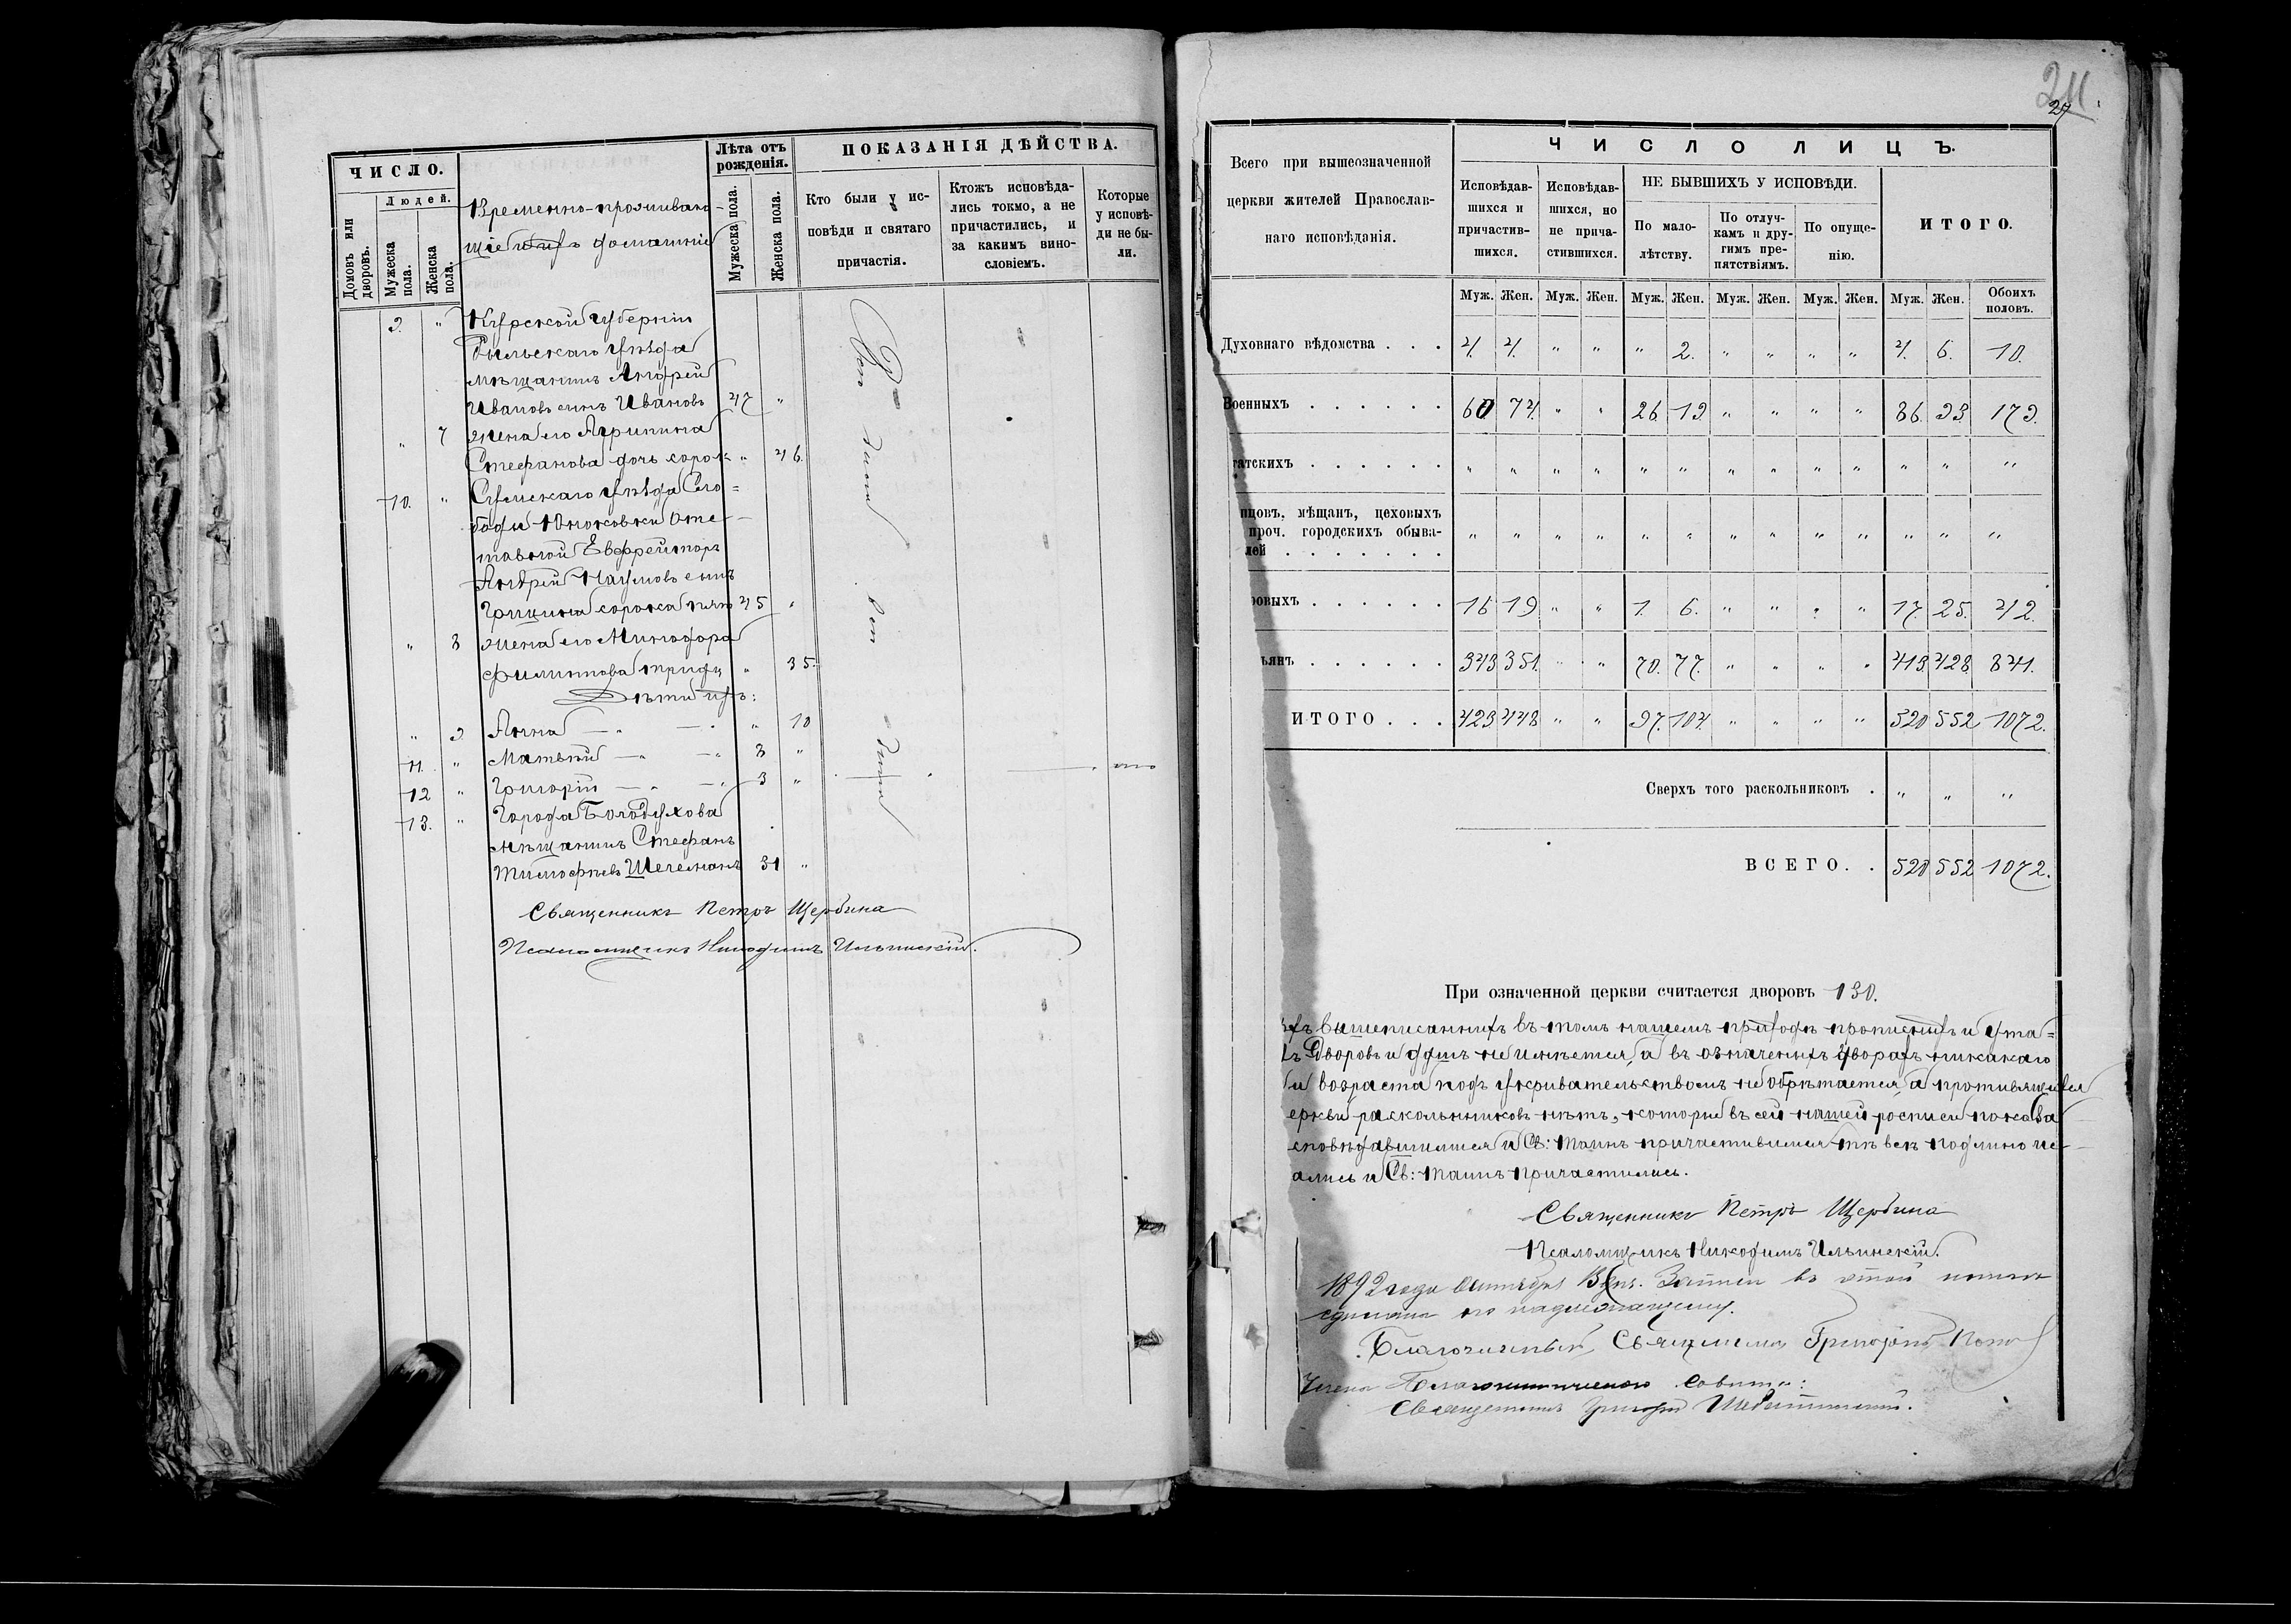 ЧИСЛО.
Людей.
Домовъ или дворовъ.
Мужеска пола.
Женска пола.
Временно-проживаю-
щіе и ихъ домашніе
Лѣта отъ рожденія.
Мужеска пола.
Женска пола.
ПОКАЗАНІЯ ДѢЙСТВА.
Кто были у исповѣди и святаго причастія.
Ктожъ исповѣдались токмо, а не причастились, и за какимъ винословіемъ.
Которые у исповѣди не были.
9. " Курской губерніи
Рыльскаго уѣзда
мѣщанинъ Андрей
Ивановъ сынъ Ивановъ 47 "
" 7 жена его Агрипина
Стефанова дочь сорок " 46.
10. " Сумскаго уѣзда Сло=
боды Юнаковки Отс-
тавной Евфрейторъ
Андрей Наумовъ сынъ
сорока пяти 45 "
" 8 жена его Минодора
Филиппова тридц " 35.
Дѣти ихъ:
" 9. Анна — " — " 10
11. " Матвѣй — " — 8 "
12 " Григорій — " — 3 "
13. " Города Богодухова
мѣщанинъ Стефанъ
Тимофѣевъ 31 "
Священникъ Петръ Щербина
Псаломщикъ Никодимъ Ильинскій.
211.
27
Всего при вышеозначенной
церкви жителей Православ-
наго исповѣданія.
ЧИСЛО ЛИЦЪ.
Исповѣдав-шихся и причастив-шихся.
Исповѣдав-шихся, но не прича-стившихся.
НЕ БЫВШИХЪ У ИСПОВѢДИ.
По мало-лѣтству.
По отлуч-камъ и дру-гимъ пре-пятствіямъ.
По опуще-нію.
ИТОГО.
Муж. Жен. Муж. Жен. Муж. Жен. Муж. Жен. Муж. Жен. Муж. Жен. Обоихъ половъ.
Духовнаго вѣдомства . . . 4. 4. " " " 2. " " " " 4. 6. 10.
Военныхъ . . . . . . 60 74. " " 26. 19 " " " " 86. 93 179.
татскихъ . . . . . . " " " " " " " " " " " " "
пцовъ, мѣщанъ, цеховыхъ
проч. городскихъ обыва-
лей . . . . . . . " " " " " " " " " " " " "
ровыхъ . . . . . . 16 19 " " 1. 6. " " " " 17. 25. 42.
ьянъ . . . . . . 343 351. " " 70. 77. " " " " 413 428 841.
ИТОГО . . . 423 448 " " 97. 104. " " " " 520 552 1072.
Сверхъ того раскольниковъ . " " "
ВСЕГО. . 520 552 1072.
При означенной церкви считается дворовъ 130.
хъ вышеписанныхъ въ томъ нашемъ приходѣ прописныхъ и ута=
ъ Дворовъ и душъ не имѣется, а въ означеныхъ дворахъ никакаго
и возраста подъ укривательствомъ не обрѣтается, а противящихся
еркви раскольниковъ нѣтъ, которыи въ сей нашей росписи показа
сповѣдавшимися и Св: Таинъ причастившися тѣ всѣ подлино ис-
ались и Св: Таинъ Причастились.
Священникъ Петръ Щербина
Псаломщикъ Никодимъ Ильинскій.
1892 года Запись въ этой
сдѣлана по надлежащему.
Благочинный, Священникъ Григорій
Члены Благочинническаго Совѣта:
Священникъ Григорій